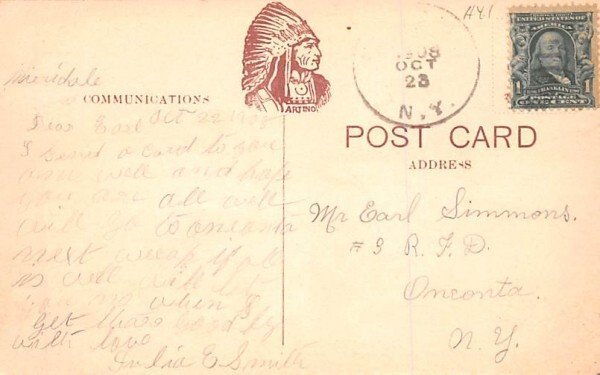 441
1908
OCT
23
N.Y.
UNITED STATES OF AMERICA
1
FRANKLIN
POSTAGE
ONE CENT
ARTINO
Meridale
COMMUNICATIONS
Oct 22 1908
Dear Earl
I send a card to you
am well and hope
you are all well
will go to Oneonta
next week if all
is well will let
you no when I
get thare good by
with love
Julia E Smith
POST CARD
ADDRESS
Mr Earl Simmons.
# 3 R. F. D.
Oneonta.
N. Y.